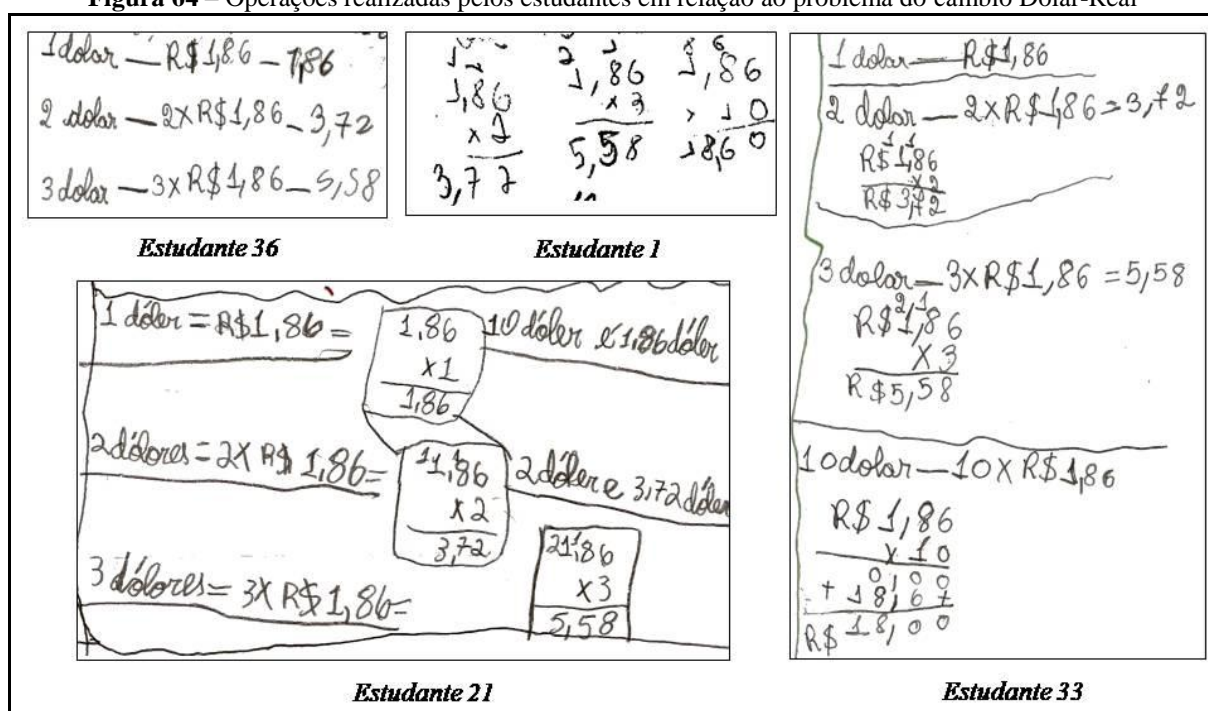 Figura 64 – Operações realizadas pelos estudantes em relação ao problema do câmbio Dólar-Real
1 dolar — R$1,86 – 1,86
2 dolar — 2XR$1,86 – 3,72
3 dolar — 3XR$1,86 – 5,58
Estudante 36
1,86
x 2
3,72
1,86
x 3
5,58
1,86
x 10
18,60
Estudante 1
1 dóler = R$1,86 =
1,86
x1
1,86
10 dóler é 1,86 dóler
2 dólores = 2X R$ 1,86 =
1,86
x2
3,72
2 dóler e 3,72 dóler
3 dólores = 3X R$1,86 =
21,86
x3
5,58
Estudante 21
1 dolar — R$1,86
2 dolar — 2XR$1,86 = 3,72
R$ 1,86
x2
R$ 3,72
3 dolar — 3XR$1,86 = 5,58
2,1
R$1,86
X3
R$5,58
10 dolar — 10XR$1,86
R$ 1,86
x 10
R$ 18,00
Estudante 33